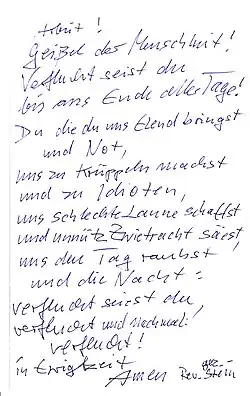 Arbeit!
Geißel der Menschheit!
Verflucht seist du
bis ans Ende aller Tage!
Du die du uns Elend bringst
und Not,
uns zu Krüppeln machst
und zu Idioten,
uns schlechte Laune schaffst
und unnütz Zwietracht säest,
uns den Tag raubst
und die Nacht:
verflucht seiest du
verflucht und nochmal:
verflucht!
in Ewigkeit
Amen Rev. Stein